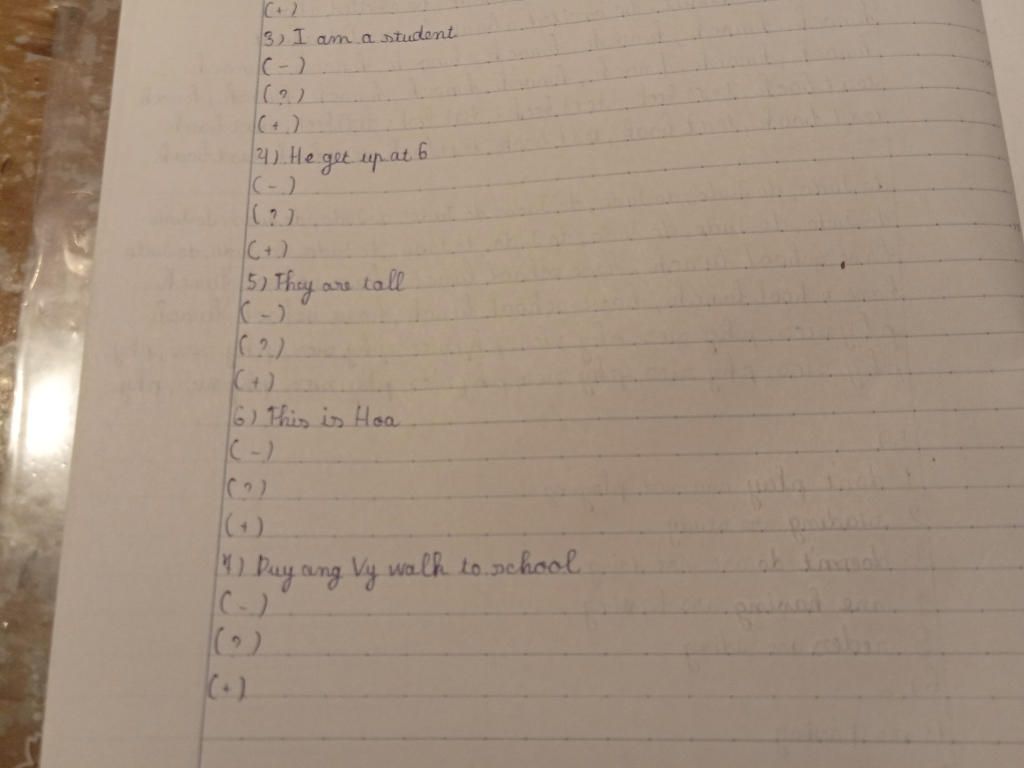 (+)
3) I am a student
(-)
(?)
(+)
4) He get up at 6
(-)
(?)
(+)
5) They are tall
(-)
(?)
(+)
6) This is Hoa
(-)
(?)
(+)
7) Duy ang Vy walk to school
(-)
(?)
(+)